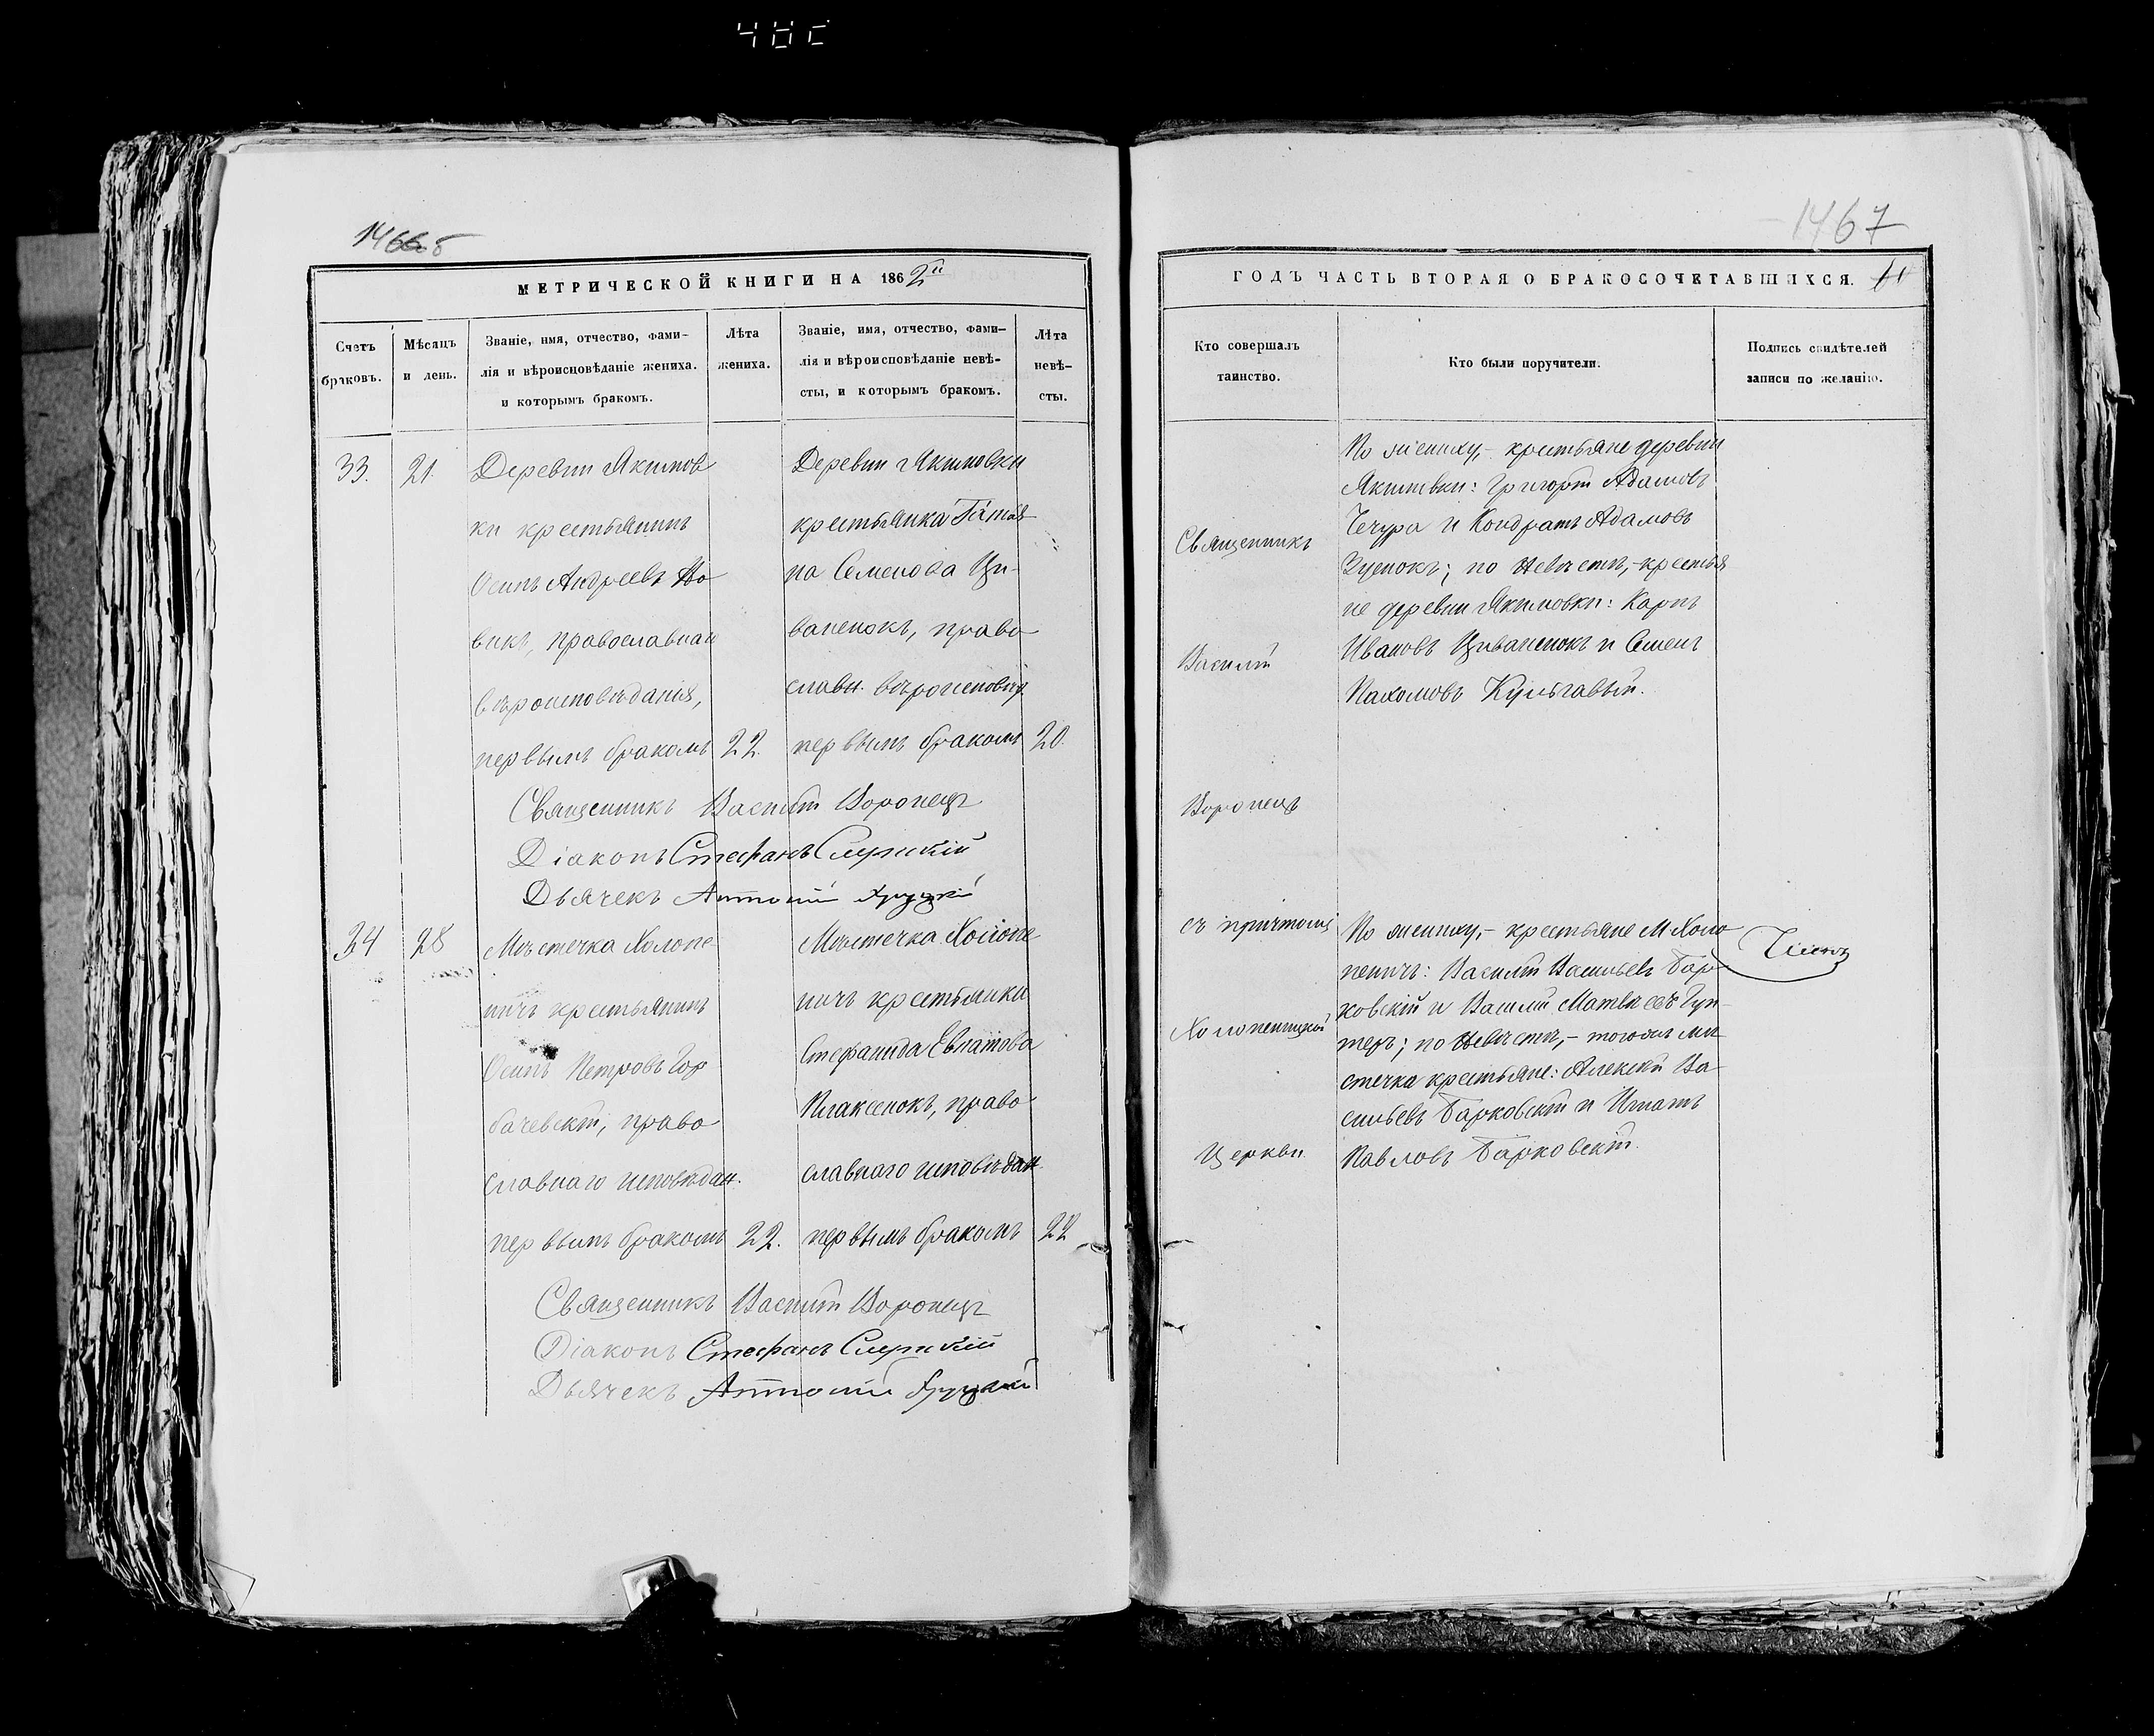 1466 б
МЕТРИЧЕСКОЙ КНИГИ НА 1862й
Счетъ браковъ.
Мѣсяцъ и день.
Званіе, имя, отчество, фами-
лія и вѣроисповѣданіе жениха.
и которымъ бракомъ.
Лѣта жениха.
Званіе, имя, отчество, фами-
лія и вѣроисповѣданіе невѣ-
сты, и которымъ бракомъ.
Лѣта невѣ-
сты.
33.
21.
Деревни Якимов
ки крестьянинъ
Осипъ Андреевъ Но
викъ, православнаго
вѣроисповѣданія,
первымъ бракомъ
22.
Деревни Якимовки
крестьянка Татья
на Семенова Ци-
ваненокъ, право
славн. вѣроисповѣд.
первымъ бракомъ
20.
Священникъ Василій Воронецъ
Діаконъ Стефанъ Слупскій
Дьячекъ Антоній Хруцкій
34
28
Мѣстечка Холопе
ничъ крестьянинъ
Осипъ Петровъ Гор
бачевскій, право
славнаго исповѣдан.
первымъ бракомъ
22.
Мѣстечка Холопе
ничъ крестьянка
Стефанида Евлатова
Плаксенокъ, право
славнаго исповѣдан.
первымъ бракомъ
22
Священникъ Василій Воронецъ
Діаконъ Стефанъ Слупскій
Дьячекъ Антоній Хруцкій
1467
ГОДЪ ЧАСТЬ ВТОРАЯ О БРАКОСОЧЕТАВШИХСЯ.
Кто совершалъ
таинство.
Кто были поручители.
Подпись свидѣтелей
записи по желанію.
Священникъ
Василій
Воронецъ
съ причтомъ
Холопеницкой
Церкви
По жениху,- крестьяне деревни
Якимовки: Григорій Адамовъ
Чечура и Кондратъ Адамовъ
Зуенокъ; по невѣстѣ,- крестья
не деревни Якимовки: Карпъ
Ивановъ Циваненокъ и Семенъ
Пахомовъ Кульгавый.
По жениху,- крестьяне М Холо
пеничъ: Василій Васильевъ Бар-
ковскій и Василій Матвѣевъ Гун-
теръ; по невѣстѣ,- тогожъ мѣ
стечка крестьяне: Алексѣй Ва-
сильевъ Барковскій и Игнатъ
Павловъ Барковскій.